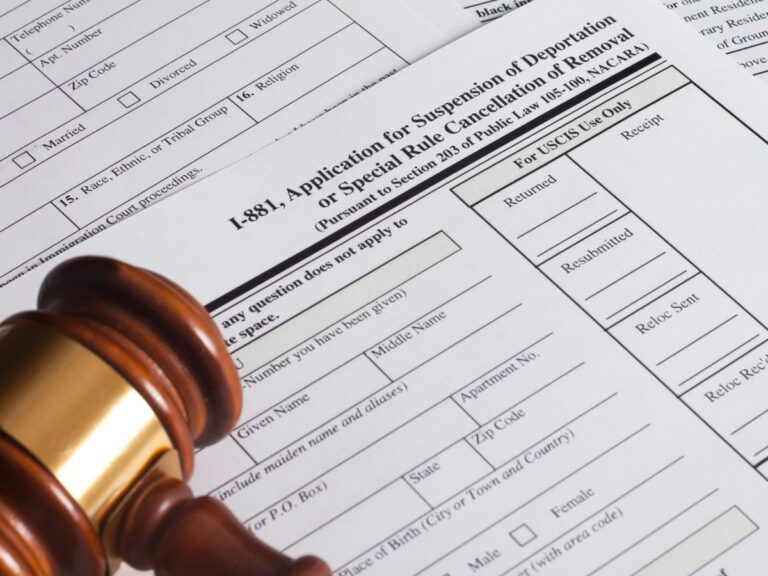 Telephone Number
( )
Apt. Number
Zip Code
Widowed
Divorced
16. Religion
Married
15. Race, Ethnic, or Tribal Group
in Immigration Court proceedings.
black in
nent Residen
rary Reside
of Groun
I-881, Application for Suspension of Deportation
or Special Rule Cancellation of Removal
(Pursuant to Section 203 of Public Law 105-100, NACARA)
For USCIS Use Only
Returned
Receipt
Resubmitted
Reloc Sent
Reloc Rec'd
any question does not apply to
te space.
-Number you have been given)
Given Name
Middle Name
include maiden name and aliases)
Apartment No.
(or P.O. Box)
State
Zip Code
Place of Birth (City or Town and Country)
Male
Female
(with area code)